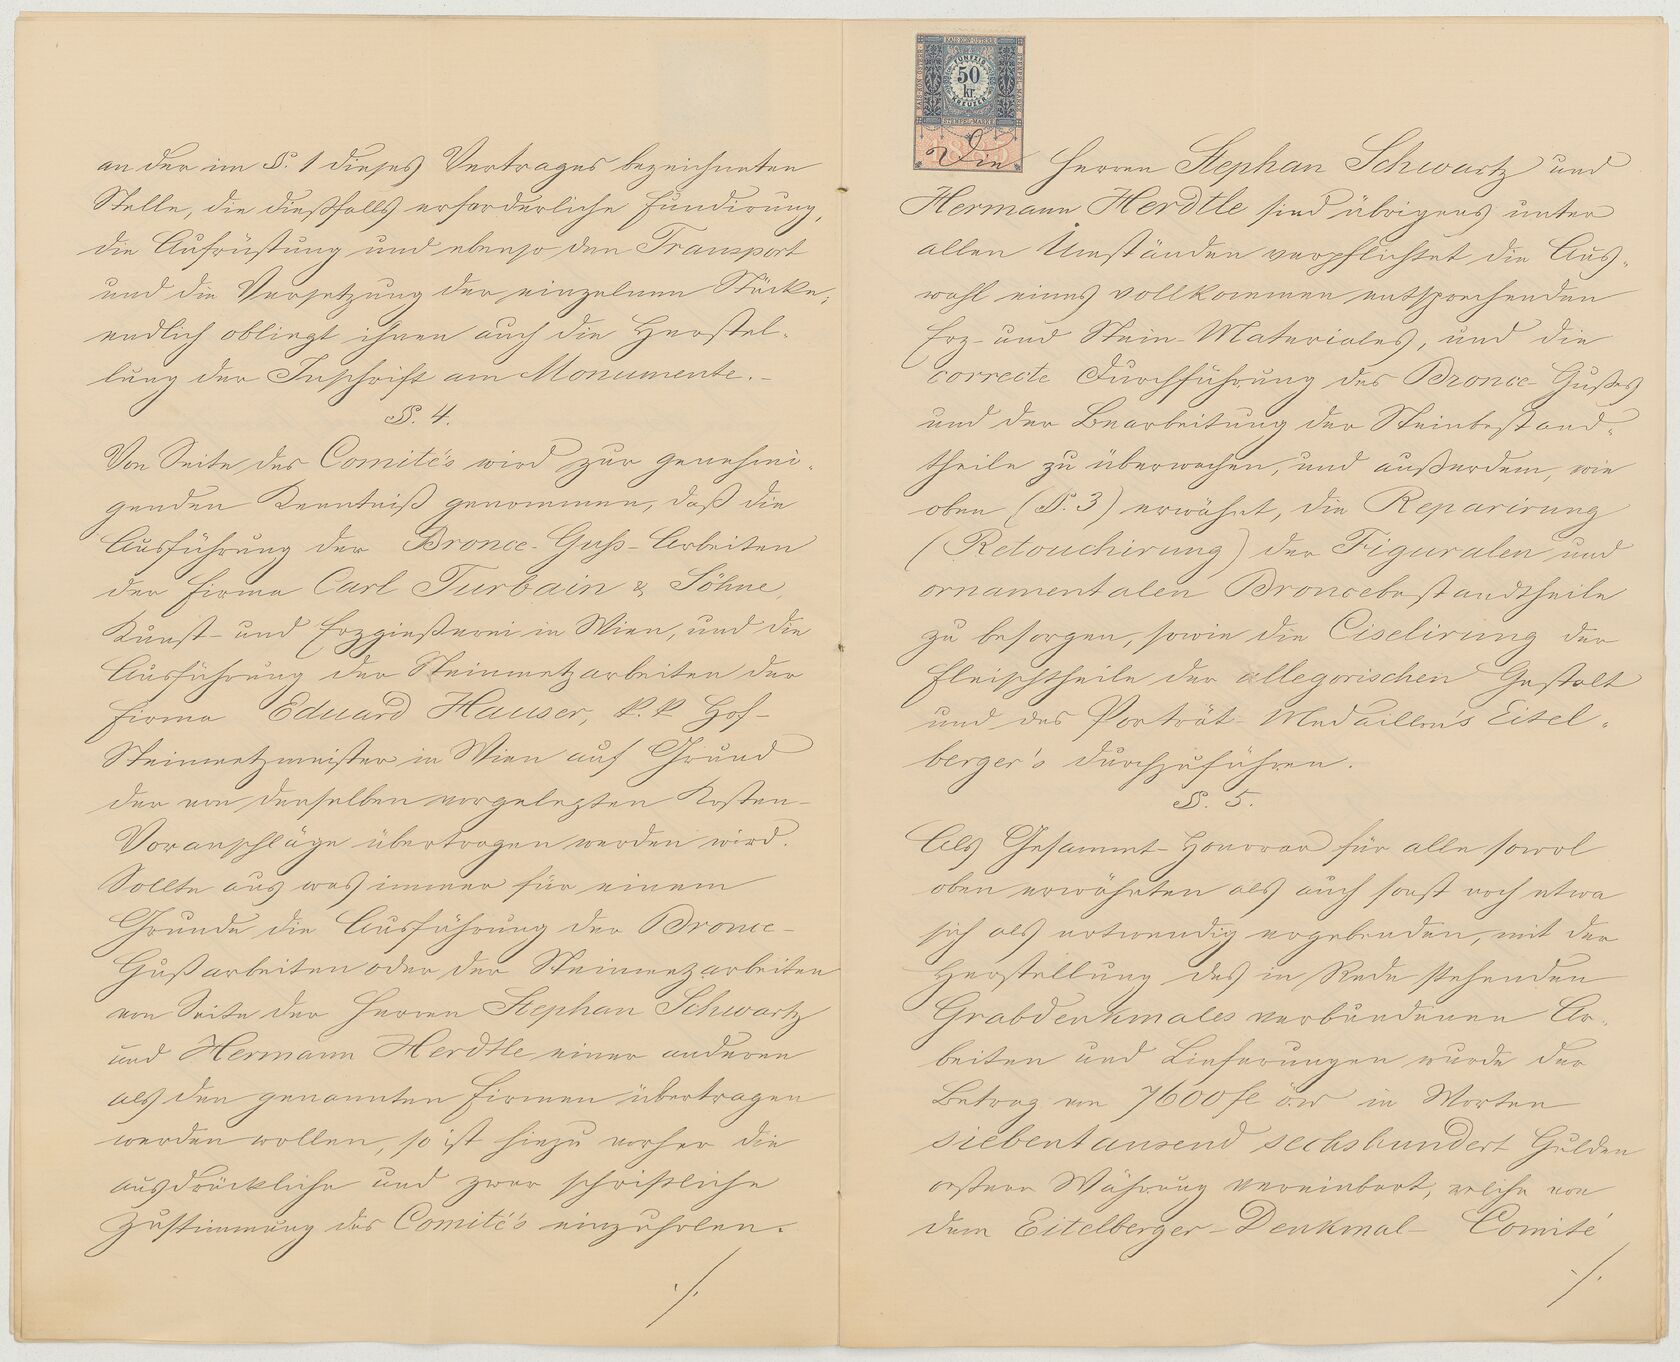 an der im §. 1 dieses Vertrages bezeichneten
Stelle, die dießfalls erforderliche Fundirung,
die Aufrüstung und ebenso den Transport
und die Versetzung der einzelnen Stücke,
endlich obliegt ihnen auch die Herstel-
lung der Inschrift am Monumente.-
§. 4.
Von Seite des Comité's wird zur genehmi-
genden Kenntniß genommen, daß die
Ausführung der Bronce-Guß-Arbeiten
der Firma Carl Turbain & Söhne,
Kunst- und Erzgießerei in Wien, und die
Ausführung der Steinmetzarbeiten der
Firma Eduard Hauser, k.k Hof-
Steinmetzmeister in Wien auf Grund
der von denselben vorgelegten Kosten-
Voranschläge übertragen werden wird.
Sollte aus was immer für einem
Grunde die Ausführung der Bronce-
Gußarbeiten oder der Steinmetzarbeiten
von Seite der Herren Stephan Schwartz
und Hermann Herdtle einer anderen
als den genannten Firmen übertragen
werden wollen, so ist hiezu vorher die
ausdrückliche und zwar schriftliche
Zustimmung des Comité's einzuholen.
./.
KAIS. KÖN. ÖSTERR.
FÜNFZIG
50
kr.
KREUZER
STEMPEL-MARKE
Die Herren Stephan Schwartz und
Hermann Herdtle sind übrigens unter
allen Umständen verpflichtet die Aus-
wahl eines vollkommen entsprechenden
Erz- und Stein-Materiales, und die
correcte Durchführung des Bronce-Gußes
und der Bearbeitung der Steinbestand-
theile zu überwachen, und außerdem, wie
oben (§. 3) erwähnt, die Reparirung
(Retouchirung) der Figuralen und
ornamentalen Broncebestandtheile
zu besorgen, sowie die Ciselirung der
Fleischtheile der allegorischen Gestalt
und des Porträt-Medaillon's Eitel-
berger's durchzuführen.
§. 5.
Als Gesammt-Honorar für alle sowol
oben erwähnten als auch sonst noch etwa
sich als notwendig ergebenden, mit der
Herstellung des in Rede stehenden
Grabdenkmales verbundenen Ar-
beiten und Lieferungen wurde der
Betrag von 7600 fl ö.w in Worten
siebentausend sechshundert Gulden
oesterr Währung vereinbart, welche von
dem Eitelberger-Denkmal-Comité
./.